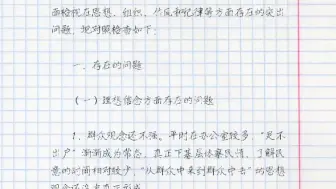 面检视在思想、组织、作风和纪律等方面存在的突出
问题，现对照检查如下：
一、存在的问题
（一）理想信念方面存在的问题
1、群众观念还不强。平时在办公室较多，“足不
出户”渐渐成为常态，真正下基层体察民情、了解民
意的时间相对较少，“从群众中来到群众中去”的思想